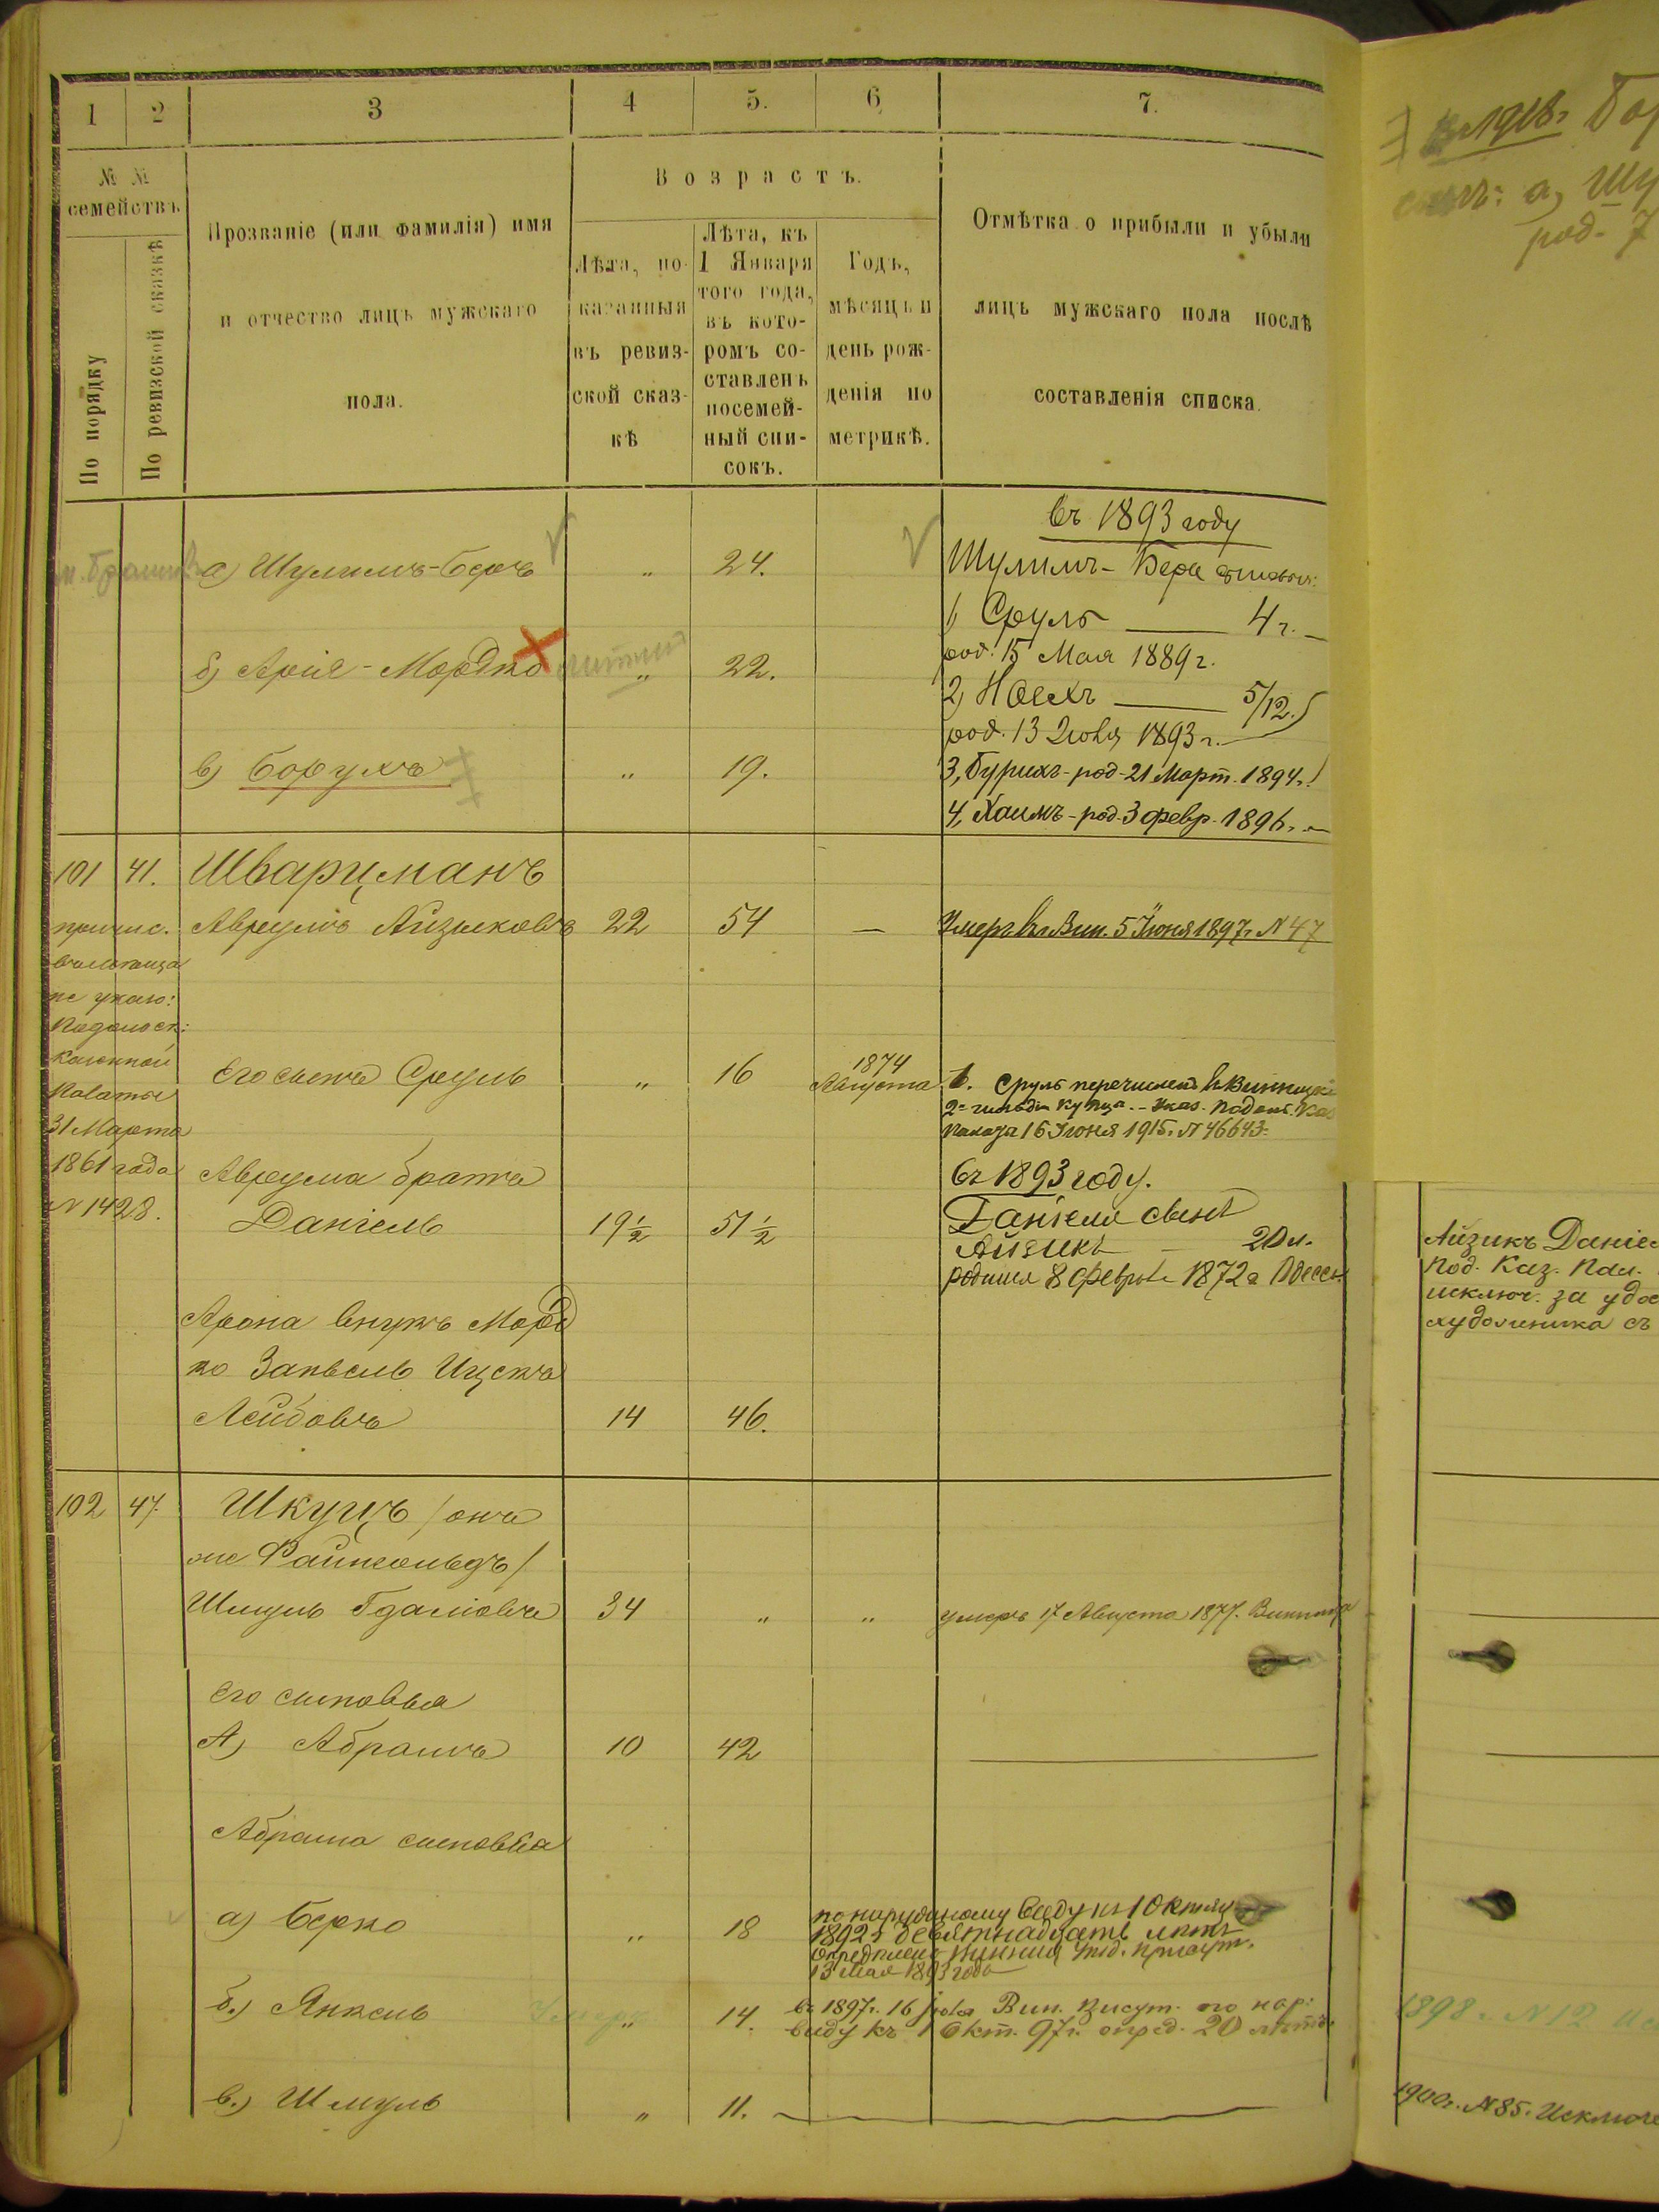 1 2 3 4 5. 6 7.
№ №
семействъ
По порядку
По ревизской сказкѣ
Прозваніе (или фамилія) имя
и отчество лицъ мужскаго
пола.
Возрастъ.
Лѣта, по-
казанныя
въ ревиз-
ской сказ-
кѣ
Лѣта, къ
1 Января
того года,
въ кото-
ромъ со-
ставленъ
посемей-
ный спи-
сокъ.
Годъ,
мѣсяцъ и
день рож-
денія по
метрикѣ.
Отмѣтка о прибыли и убыли
лицъ мужскаго пола послѣ
составленія списка.
въ 1893 году
а) Шулимъ-Беръ „ 24.
Шулимъ-Бера
1) Сруль — 4 г. —
род. 15 Мая 1889 г.
б) Арія-Мордко „ 22.
2) Ноехъ — 5/12.
род. 13 Іюля 1893 г.
в) Борухъ „ 19.
3, Бурихъ-род-21 Март. 1894 г.
4, Хаимъ-род. 3 февр. 1896 г. —
101 41. Шварцманъ
Авреумъ Айзиковъ 22 54 —
Умеръ въ Вин. 5 Іюня 1897 г. № 47
причис.
по указо:
Подольск:
Казенной
Палаты
31 Марта
1861 года
№ 1428.
Его сынъ Сруль „ 16 1874 Августа 1.
Сруль перечисленъ въ Винницк
2й гильдіи купца. - Указ. Подол. Каз
Палаты 16 Іюня 1915 г. № 46643.
Авреума братъ
Даніель 19½ 51½
въ 1893 году.
Даніеля сынъ
Айзикъ — 20 л.
родился 8 февраля 1872 г Одессы
Арона внукъ Морд
ко Запвель Ицекъ
Лейбовъ 14 46.
102 47. Шкуцъ / онъ
же Файнгольдъ /
Шмуль Гдаліовъ 34 „ „ умеръ 17 Августа 1877. Винница
Его сыновья
А) Абрамъ 10 42
Абрама сыновья
а) Берко „ 18
по наружному виду къ 1 Октября
1892 г девятнадцать лѣтъ
опредѣлено Винниц. Уѣзд. присут.
13 Мая 1893 года
б.) Янкель Умеръ „ 14.
въ 1897 г. 16 Вин. присут. по нар:
виду къ 1 Окт. 97 г. опред. 20 лѣтъ.
в.) Шмуль „ 11.
въ 1918 г. Бор
сынъ: а, Шу
род. 7
Айзикъ Даніе
Под. Каз. Пал.
исключ. за удос
художника съ
1898 г. № 12 Ис
1900 г. № 85. Исключе